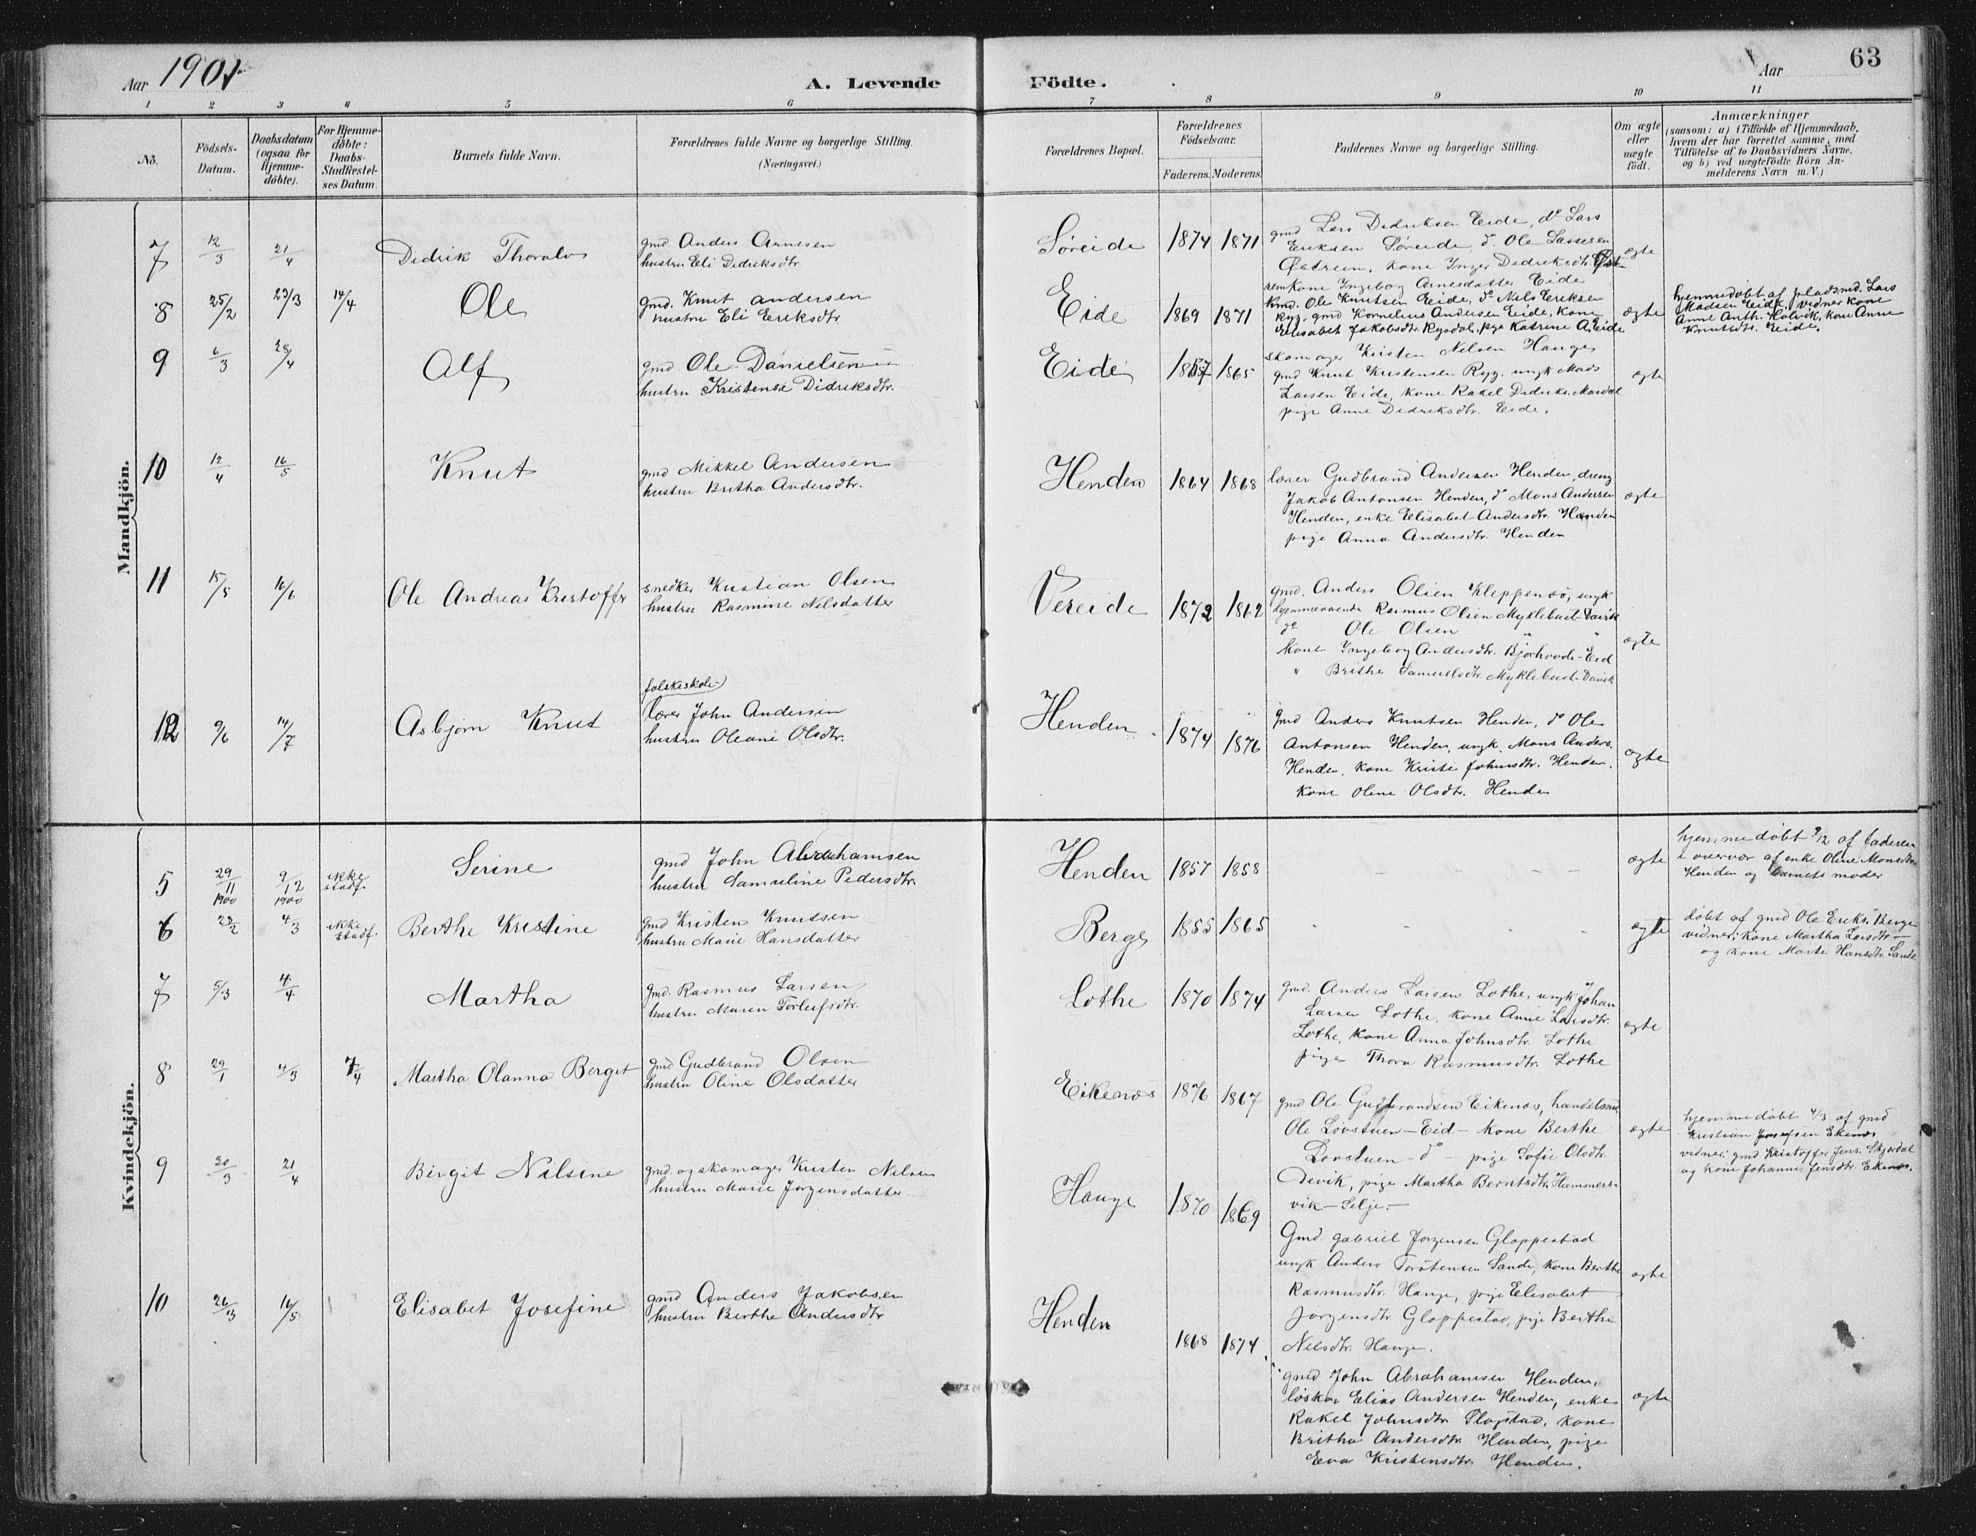 Aar 1901
A. Levende Födte.
Aar
63
1 2 3 4 5 6 7 8 9 10 11
No.
Födsels-Datum.
Daabsdatum (ogsaa for Hjemme-döbte).
For Hjemme-döbte: Daabs-Stadfæstel-ses Datum.
Barnets fulde Navn.
Forældrenes fulde Navne og borgerlige Stilling. (Næringsvei.)
Forældrenes Bopæl.
Forældrenes Födselsaar.
Faderens. Moderens.
Faddernes Navne og borgerlige Stilling.
Om ægte eller uægte födt.
Anmærkninger
(saasom: a) i Tilfælde af Hjemmedaab, hvem der har forrettet samme, med Tilföielse af to Daabsvidners Navne, og b) ved uægtefödte Börn An-melderens Navn m. V.)
Mandkjön.
7 12/3 21/4 Didrik Thoralv
gmd. Anders Arnesen
hustru Eli Didriksdtr.
Søreide 1874 1871
gmd Lars Didriksen Eide, do Lars
Eriksen Søreide, do Ole Lassesen
Østrem, kone Inger Didriksdtr Øst-
rem kone Ingebog Arnesdatter Eide
ægte
8 25/2 23/3 14/4 Ole
gmd. Knut Andersen
hustru Eli Eriksdtr
Eide 1869 1871
Gmd. Ole Knutsen Eide, do Nils Eriksen
Ryg, gmd Kornelius Andersen Eide, kone
Elisabet Jakobsdtr Rygdal, pige Katrine A. Eide
ægte
hjemmedøbt af pladsmd. Lars
Madsen Eide, vidner kone
Anne Anth. Holvik, kone Anne
Knutsdtr. Eide.
9 6/3 28/4 Alf
gmd Ole Danielsen
hustru Kristense Didriksdtr.
Eide 1865
skomager Kristen Nilsen Hauge
gmd Knut Kristensen Ryg, ungk Mads
Larsen Eide, kone Rakel Didriks. Mardal
pige Anne Didriksdtr. Eide.
ægte
10 12/4 16/5 Knut
gmd Mikkel Andersen
hustru Britha Andersdtr.
Henden 1864 1868
lærer Gudbrand Andersen Henden, dreng
Jakob Antonsen Henden, do Mons Andersen
Henden, enke Elisabet Andersdtr. Henden
pige Anna Andersdtr. Henden
ægte
11 15/5 16/6 Ole Andreas Kristoffer
snedker Kristian Olsen
hustru Rasmine Nilsdatter
Vereide 1872 1862
gmd. Anders Olsen Kleppenes, ungk
hjemmeværende Rasmus Olsen Myklebust-Davik
do Ole Olsen " "
kone Ingeborg Andersdtr. Bjørhovde-Eid
" Brithe Samuelsdtr. Myklebust-Davik
ægte
12 9/6 14/7 Asbjørn Knut
folkeskole-
lærer John Andersen
hustru Oleane Olsdtr.
Henden 1874 1876
Gmd Anders Knutsen Henden, do Ole
Antonsen Henden, ungk. Mons Anders.
Henden, kone Kristi Johnsdtr. Henden.
kone Oline Olsdtr. Henden
ægte
Kvindekjön.
5 29/11 1900 9/12 1900 ikke stadf. Serine
gmd John Abrahamsen
hustru Samueline Pedersdtr.
Henden 1857 1858
ægte
hjemmedøbt 9/12 af faderen
i overvær af enke Oline Monsdtr.
Henden og barnets moder
6 4/3 ikke stadf. Berthe Kristine
gmd Kristen Knutsen
hustru Marie Hansdatter
Berge 1855 1865
ægte
døbt af gmd Ole Eriks. Berge
vidner: kone Martha Larsdtr —
og kone Marte Hansdtr. Sande
7 5/3 4/4 Martha
gmd. Rasmus Larsen
hustru Maren Torleifsdtr.
Lothe 1870 1874
gmd. Anders Larsen Lothe, ungk Johan
Larsen Lothe, kone Anne Larsdtr.
Lothe, kone Anna Johnsdtr. Lothe
pige Thora Rasmusdtr. Lothe
ægte
8 29/1 4/3 7/4 Martha Olanna Berget
gmd Gudbrand Olsen
hustru Oline Olsdatter
Eikenes 1876 1867
gmd Ole Gudbrandsen Eikenæs, handelsmd
Ole Løvstuen — Eid — kone Berthe
Løvstuen — do — pige Sofie Olsdtr.
Devik, pige Martha Berntsdtr. Hammers-
vik — Selje. —
ægte
hjemmedøbt 4/3 af gmd
Kristian Josefsen Ekenes
vidner: gmd Kristoffer Jens. Skjerdal
og kone Johanne Jensdtr. Ekenes.
9 20/3 21/4 Birgit Nilsine
gmd og skomager Kristen Nilsen
hustru Marie Jørgensdatter
Hauge 1870 1869
Gmd. Gabriel Jørgensen Gloppestad
ungk Anders Torstensen Sande, kone Berthe
Rasmusdtr. Hauge, pige Elisabet
Jørgensdtr Gloppestad, pige Berthe
Nilsdtr. Hauge.
ægte
10 26/3 16/5 Elisabet Josefine
gmd Anders Jakobsen
hustru Berthe Andersdtr
Henden 1868 1874
gmd John Abrahamsen Henden,
løskar Elias Andersen Henden, enke
Rakel Johnsdtr. Flogstad, kone
Britha Andersdtr. Henden, pige
Eva Kristensdtr. Henden.
ægte